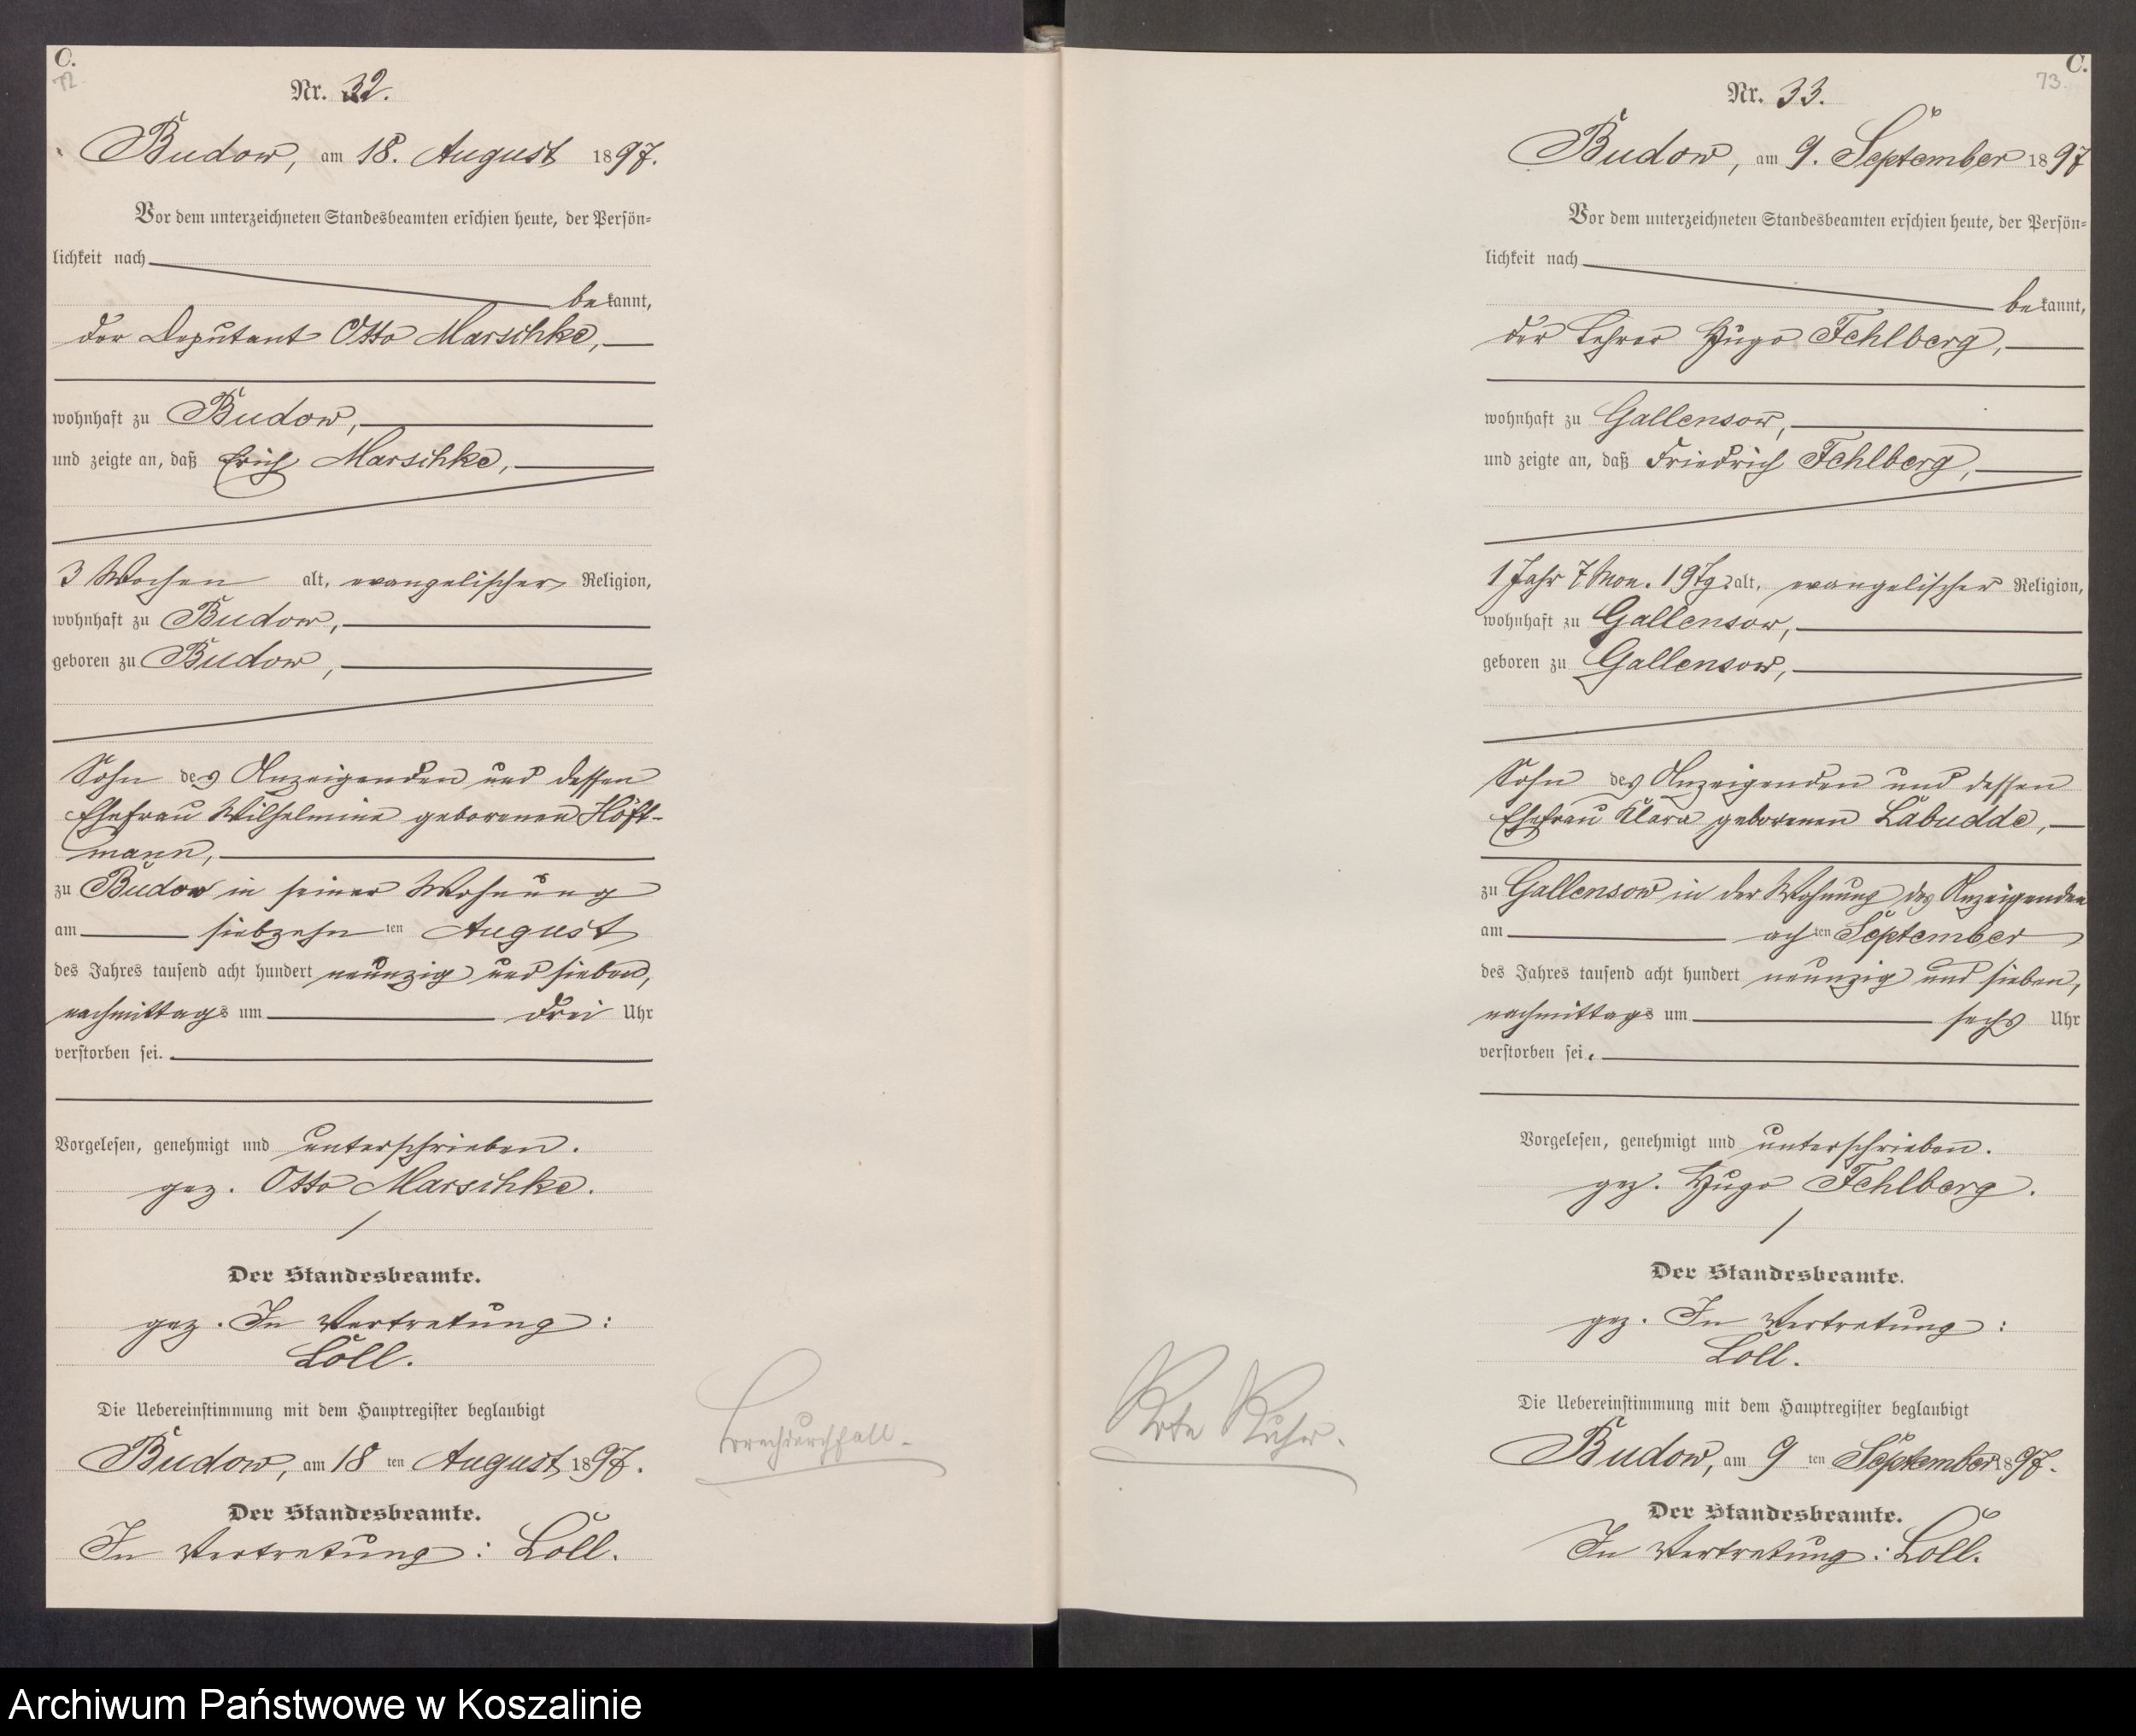 C.
72
Nr. 32.
Budow, am 18. August 1897.
Vor dem unterzeichneten Standesbeamten erschien heute, der Persön-
lichkeit nach
bekannt,
der Deputant Otto Marschke,
wohnhaft zu Budow,
und zeigte an, daß Erich Marschke,
3 Wochen alt, evangelischer Religion,
wohnhaft zu Budow,
geboren zu Budow,
Sohn des Anzeigenden und dessen
Ehefrau Wilhelmine geborenen Höft-
mann,
zu Budow in seiner Wohnung
am siebzehnten August
des Jahres tausend acht hundert neunzig und sieben,
nachmittags um drei Uhr
verstorben sei.
Vorgelesen, genehmigt und unterschrieben.
gez. Otto Marschke.
Der Standesbeamte.
gez. In Vertretung:
Löll.
Die Uebereinstimmung mit dem Hauptregister beglaubigt
Budow, am 18 ten August 1897.
Der Standesbeamte.
In Vertretung: Löll.
Brechdurchfall.
C.
73
Nr. 33.
Budow, am 9. September 1897
Vor dem unterzeichneten Standesbeamten erschien heute, der Persön-
lichkeit nach
bekannt,
der Lehrer Hugo Fehlberg,
wohnhaft zu Gallensow,
und zeigte an, daß Friedrich Fehlberg,
1 Jahr 7 Mon. 19 Tg. alt, evangelischer Religion,
wohnhaft zu Gallensow,
geboren zu Gallensow,
Sohn des Anzeigenden und dessen
Ehefrau Klara geborenen Labudde,
zu Gallensow in der Wohnung des Anzeigenden
am achten September
des Jahres tausend acht hundert neunzig und sieben,
nachmittags um sechs Uhr
verstorben sei.
Vorgelesen, genehmigt und unterschrieben.
gez. Hugo Fehlberg.
Der Standesbeamte.
gez. In Vertretung:
Löll.
Die Uebereinstimmung mit dem Hauptregister beglaubigt
Budow, am 9 ten September 1897.
Der Standesbeamte.
In Vertretung: Löll.
Rote Ruhr.
Archiwum Państwowe w Koszalinie